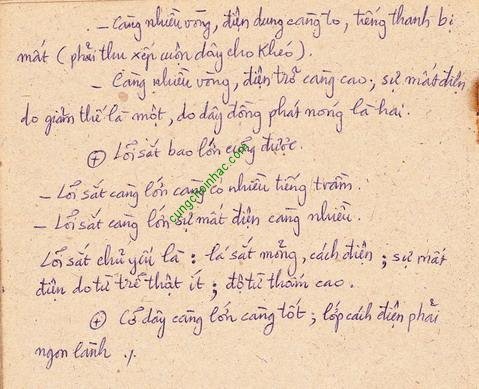 - Càng nhiều vòng, điện dung càng to, tiếng thanh bị
mất (phải thu xếp cuộn dây cho khéo).
- Càng nhiều vòng, điện trở càng cao; sự mất điện
do giảm thế là một, do dây đồng phát nóng là hai.
⊕ Lõi sắt bao lớn cũng được.
- Lõi sắt càng lớn càng có nhiều tiếng trầm.
- Lõi sắt càng lớn sự mất điện càng nhiều.
Lõi sắt chủ yếu là: lá sắt mỏng, cách điện; sự mất
điện do từ trễ thật ít; độ từ thẩm cao.
⊕ Cỡ dây càng lớn càng tốt; lớp cách điện phải
ngon lành ./.
cungchoinhac.com